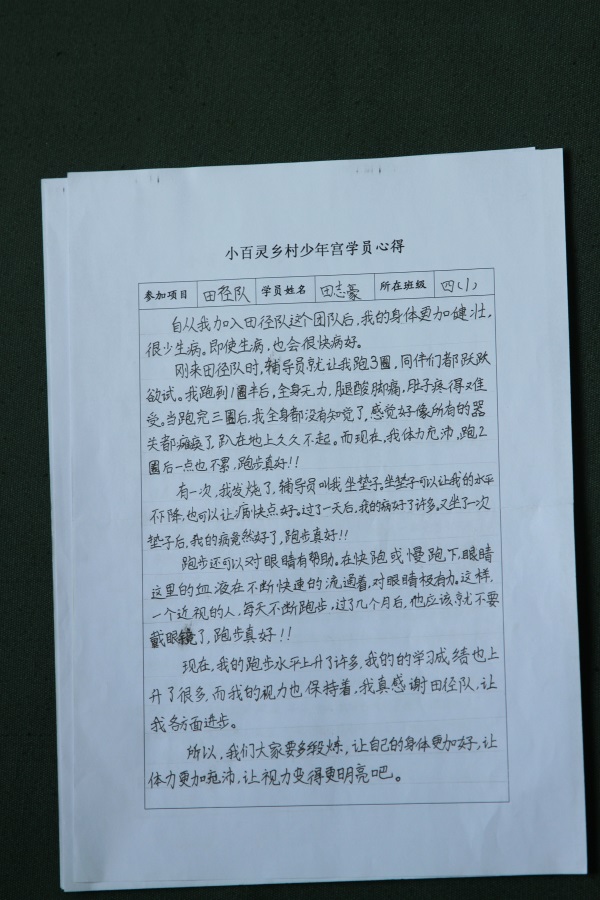 小百灵乡村少年宫学员心得
参加项目 田径队 学员姓名 田志豪 所在班级 四(1)
自从我加入田径队这个团队后,我的身体更加健壮,
很少生病。即使生病,也会很快病好。
刚来田径队时,辅导员就让我跑3圈,同伴们都跃跃
欲试。我跑到1圈半后,全身无力,腿酸脚痛,肚子疼得又难
受。当跑完三圈后,我全身都没有知觉了,感觉好像所有的器
关都瘫痪了,趴在地上久久不起。而现在,我体力充沛,跑2
圈后一点也不累,跑步真好!!
有一次,我发烧了,辅导员叫我坐垫子。坐垫子可以让我的水平
不下降,也可以让病快点好。过了一天后,我的病好了许多,又坐了一次
垫子后,我的病竟然好了,跑步真好!!
跑步还可以对眼睛有帮助。在快跑或慢跑下,眼睛
这里的血液在不断快速的流通着,对眼睛极有力。这样,
一个近视的人,每天不断跑步,过了几个月后,他应该就不要
戴眼镜了,跑步真好!!
现在,我的跑步水平上升了许多,我的的学习成绩也上
升了很多,而我的视力也保持着,我真感谢田径队,让
我各方面进步。
所以,我们大家要多锻炼,让自己的身体更加好,让
体力更加充沛,让视力变得更明亮吧。